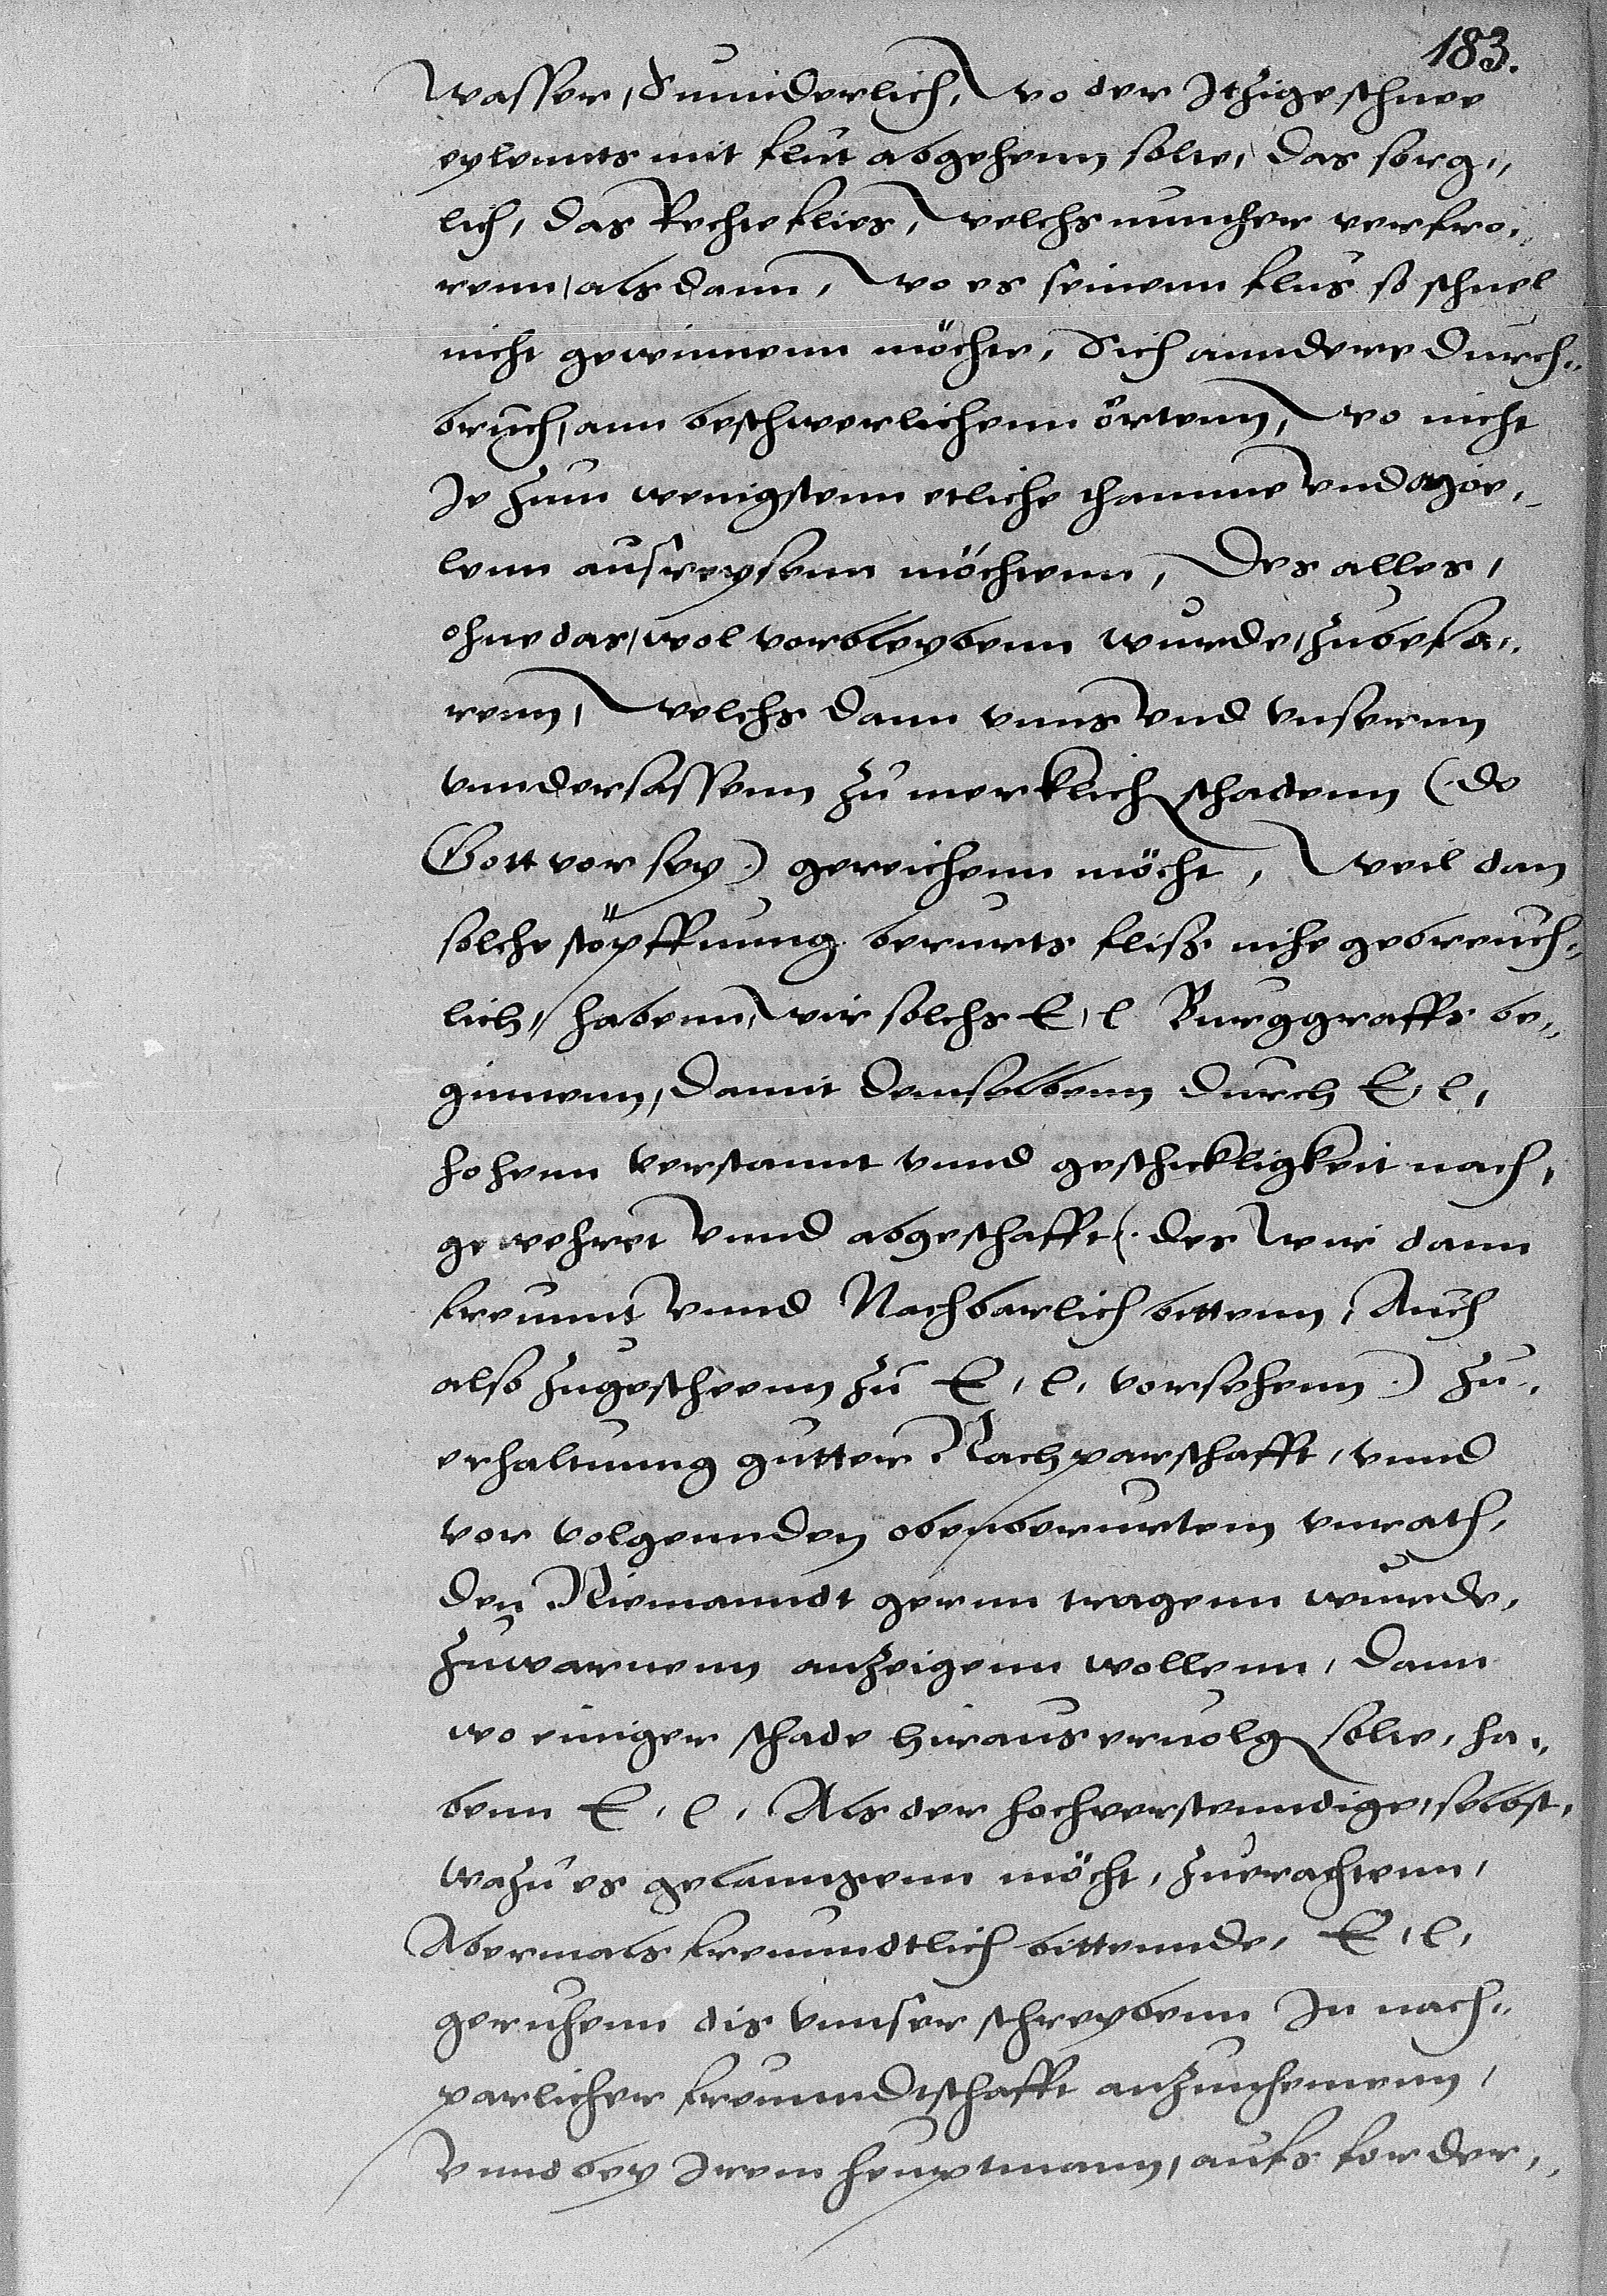 183.
wasser, Sunnderlich, wo der Itzige schnee
eylennts mit flut abgehenn solte, das sorg„
lich, das Rechte flies, welchs nunher verfro„
renn, als dann, wo es seinenn flus so schnel
nicht gewinnenn möchte, Sich anndere durch„
bruch, ann beschwerlichenn örtenn, wo nicht
Je zum wenigstenn etliche thamme vnd Moe„
lenn ausreysenn möchtenn, Des alles,
ohne das, wol vorbleybenn wurde, zubefa„
renn, welchs dann vnns vnd vnsernn
vnndersassenn zu merklich schadenn (: do
Gott vor sey :) gereichenn möcht, weil dan
solche stöpffnung berurts flis nihe gebreuch„
lich, habenn wir solchs E, l Burggraffs be„
ginnenn, damit demselbenn durch E, l,
hohenn verstannt vnnd geschickligkeit nach,
gewehret vnnd abgeschafft (: des wir dann
freunnt vnnd Nachbarlich bittenn, Auch
also zugescheenn zu E, l, vorsehenn :) zu„
erhaltnung gutter Nachparschafft, vnnd
vor volgennden obenberurtem vnrath,
den Niemanndt gernn tragenn wurde,
zuwarnenn anzeigenn wollenn, Dann
wo einiger schade hiraus ervolg solte, ha„
benn E, l, Als der hochverstenndige, selbst,
wazu es gelanngenn möcht, zuerachtenn,
Abermals freunndtlich bittennde, E, l,
geruhenn dis vnnser schreybenn In nach„
parlicher freunndtschafft anzunhemenn,
Vnnd bey Irem heuptmann, aufs forder„